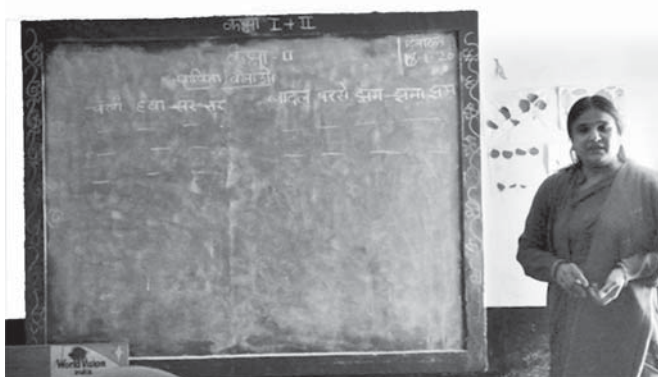 कक्षा I + II
कक्षा - II
कविता बनाओ।
चली हवा सर-सर
बादल बरसे झम-झमा झम
World Vision
India